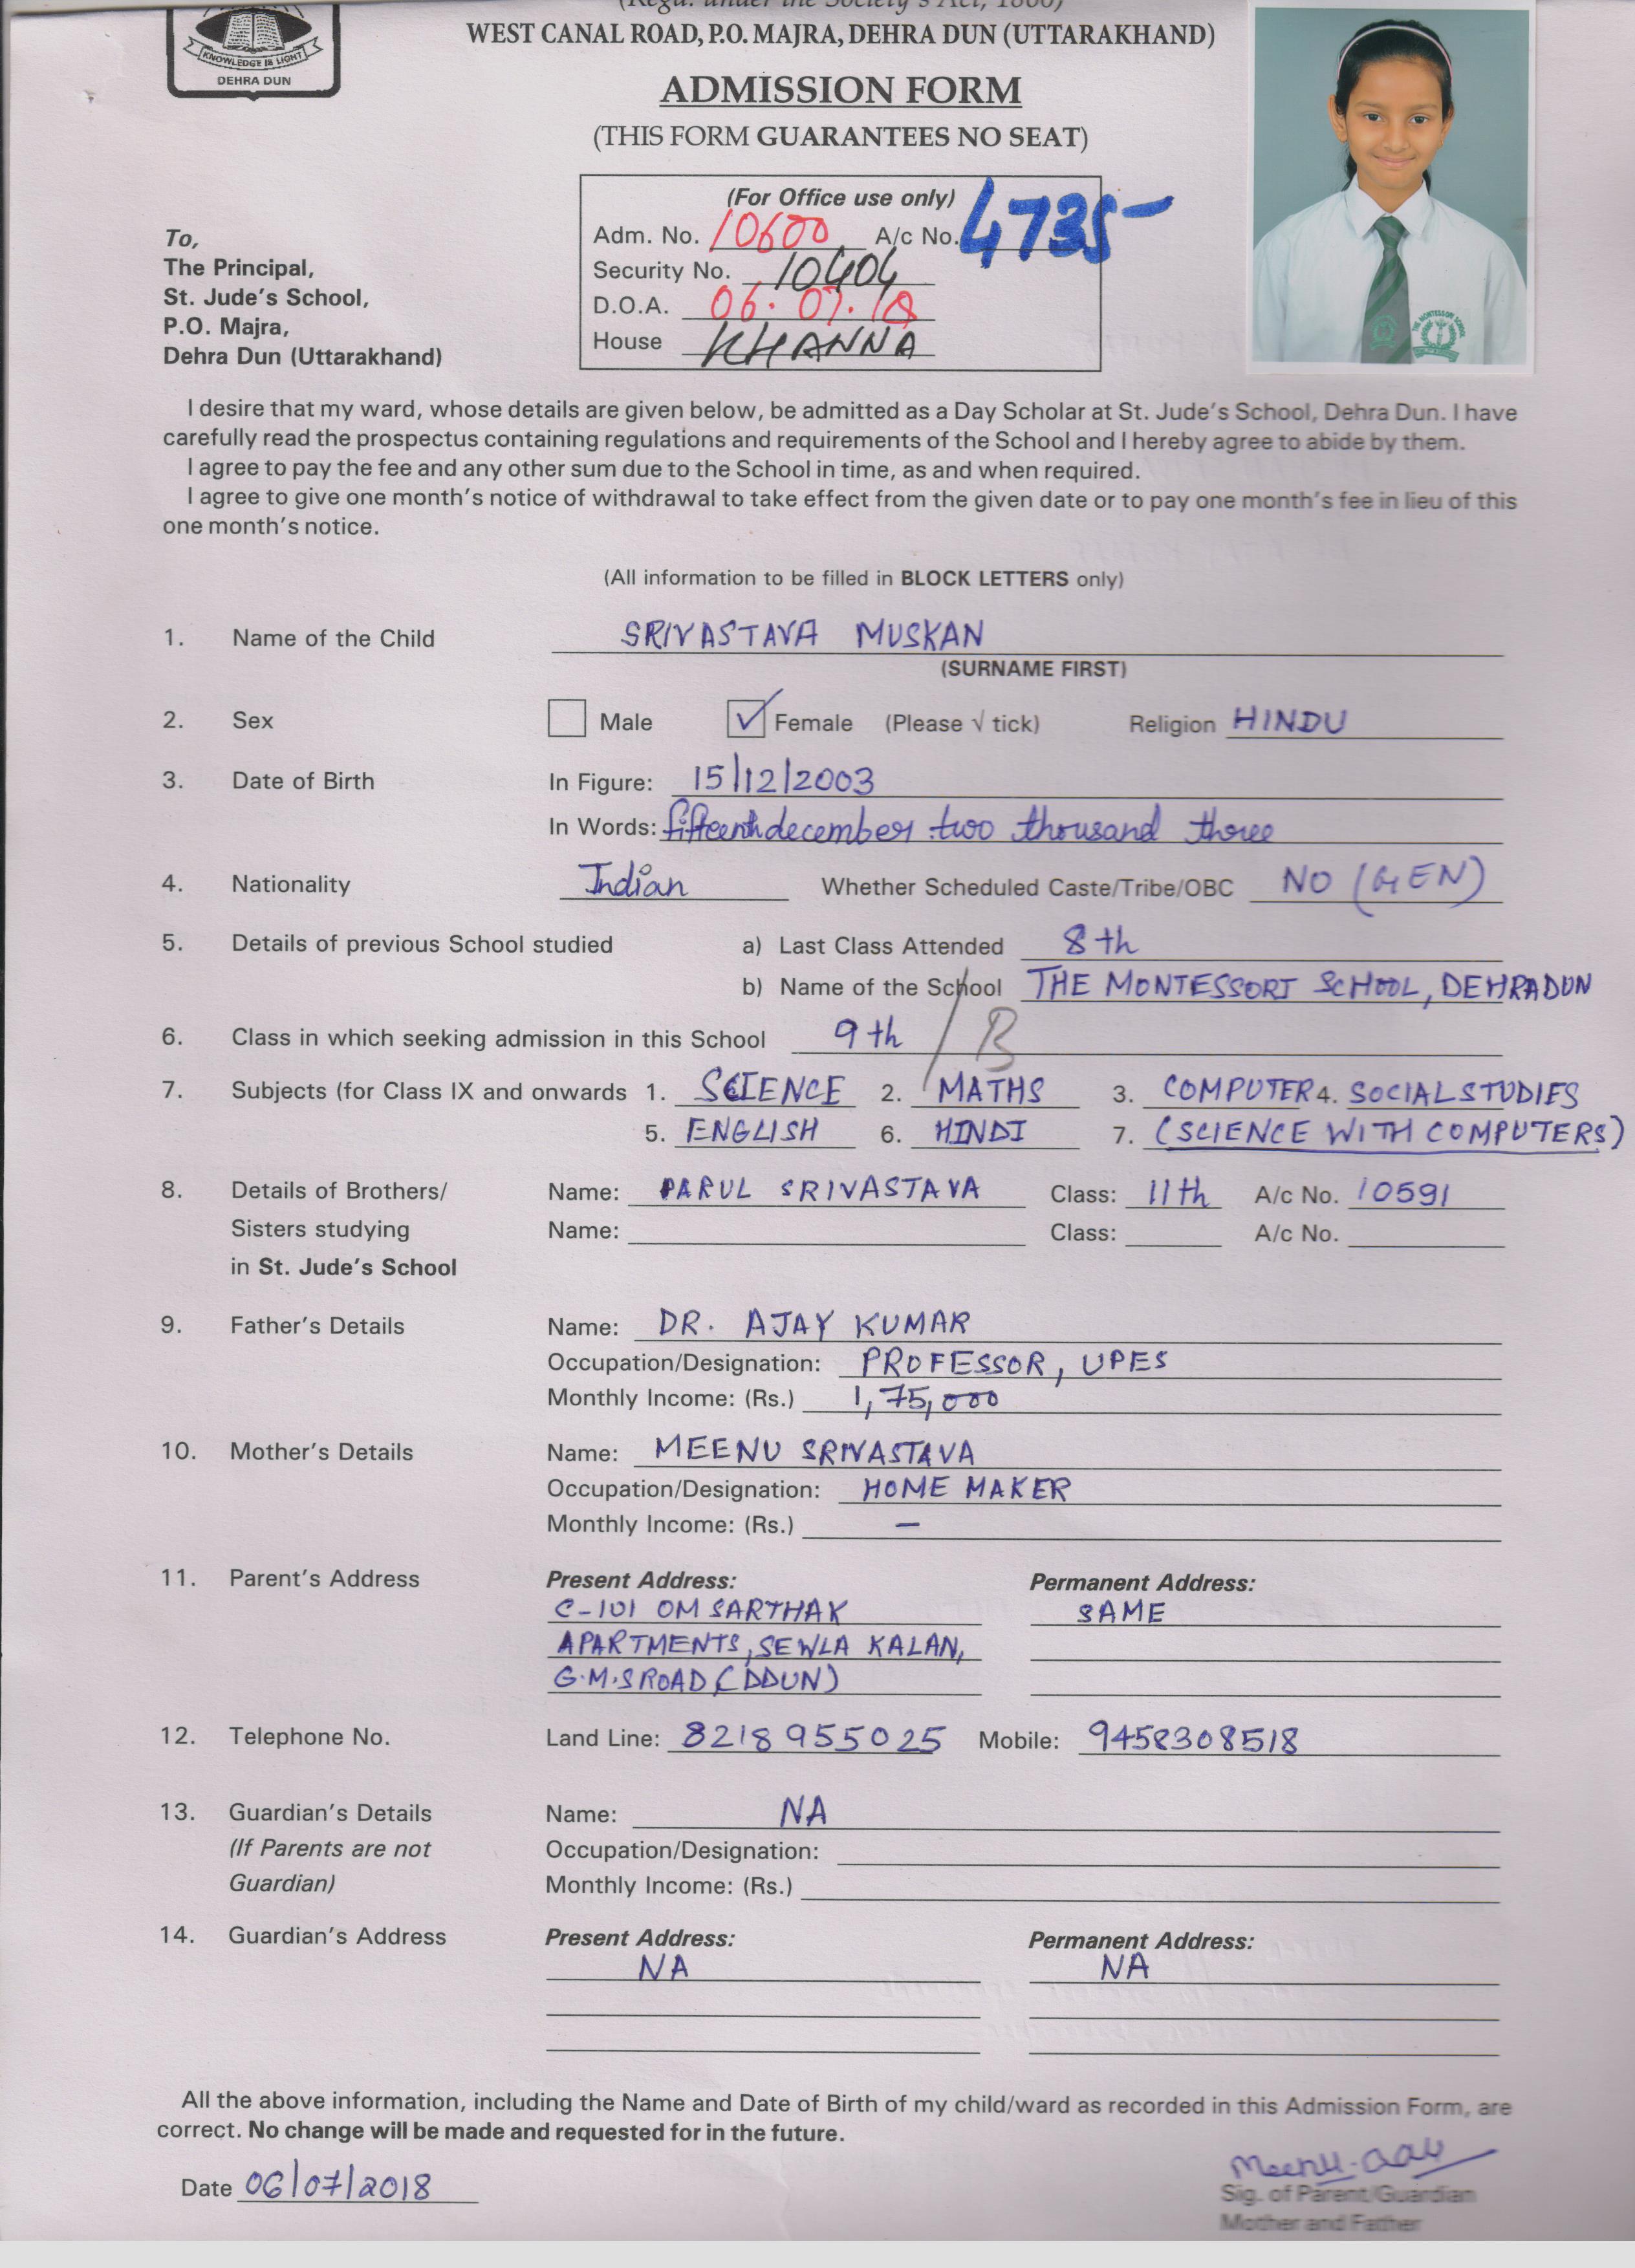 (Regd. under the Society's Act, 1860)
WEST CANAL ROAD, P.O. MAJRA, DEHRA DUN (UTTARAKHAND)
KNOWLEDGE IS LIGHT
DEHRA DUN
ADMISSION FORM
(THIS FORM GUARANTEES NO SEAT)
(For Office use only)
Adm. No. 10600 A/c No. 4735
Security No. 10404
D.O.A. 06.07.18
House KHANNA
THE MONTESSORI SCHOOL
To,
The Principal,
St. Jude's School,
P.O. Majra,
Dehra Dun (Uttarakhand)
I desire that my ward, whose details are given below, be admitted as a Day Scholar at St. Jude's School, Dehra Dun. I have
carefully read the prospectus containing regulations and requirements of the School and I hereby agree to abide by them.
I agree to pay the fee and any other sum due to the School in time, as and when required.
I agree to give one month's notice of withdrawal to take effect from the given date or to pay one month's fee in lieu of this
one month's notice.
(All information to be filled in BLOCK LETTERS only)
1. Name of the Child SRIVASTAVA MUSKAN
(SURNAME FIRST)
2. Sex Male ✓ Female (Please √ tick) Religion HINDU
3. Date of Birth In Figure: 15/12/2003
In Words: fifteenth december two thousand three
4. Nationality Indian Whether Scheduled Caste/Tribe/OBC NO (GEN)
5. Details of previous School studied a) Last Class Attended 8th
b) Name of the School THE MONTESSORI SCHOOL, DEHRADUN
6. Class in which seeking admission in this School 9th / B
7. Subjects (for Class IX and onwards 1. SCIENCE 2. MATHS 3. COMPUTER 4. SOCIAL STUDIES
5. ENGLISH 6. HINDI 7. (SCIENCE WITH COMPUTERS)
8. Details of Brothers/ Name: PARUL SRIVASTAVA Class: 11th A/c No. 10591
Sisters studying Name: Class: A/c No.
in St. Jude's School
9. Father's Details Name: DR. AJAY KUMAR
Occupation/Designation: PROFESSOR, UPES
Monthly Income: (Rs.) 1,75,000
10. Mother's Details Name: MEENU SRIVASTAVA
Occupation/Designation: HOME MAKER
Monthly Income: (Rs.) –
11. Parent's Address Present Address: Permanent Address:
C-101 OM SARTHAK SAME
APARTMENTS, SEWLA KALAN,
G.M.S ROAD (DDUN)
12. Telephone No. Land Line: 8218955025 Mobile: 9458308518
13. Guardian's Details Name: NA
(If Parents are not Occupation/Designation:
Guardian) Monthly Income: (Rs.)
14. Guardian's Address Present Address: Permanent Address:
NA NA
All the above information, including the Name and Date of Birth of my child/ward as recorded in this Admission Form, are
correct. No change will be made and requested for in the future.
Date 06/07/2018
Meenu
Sig. of Parent/Guardian
Mother and Father